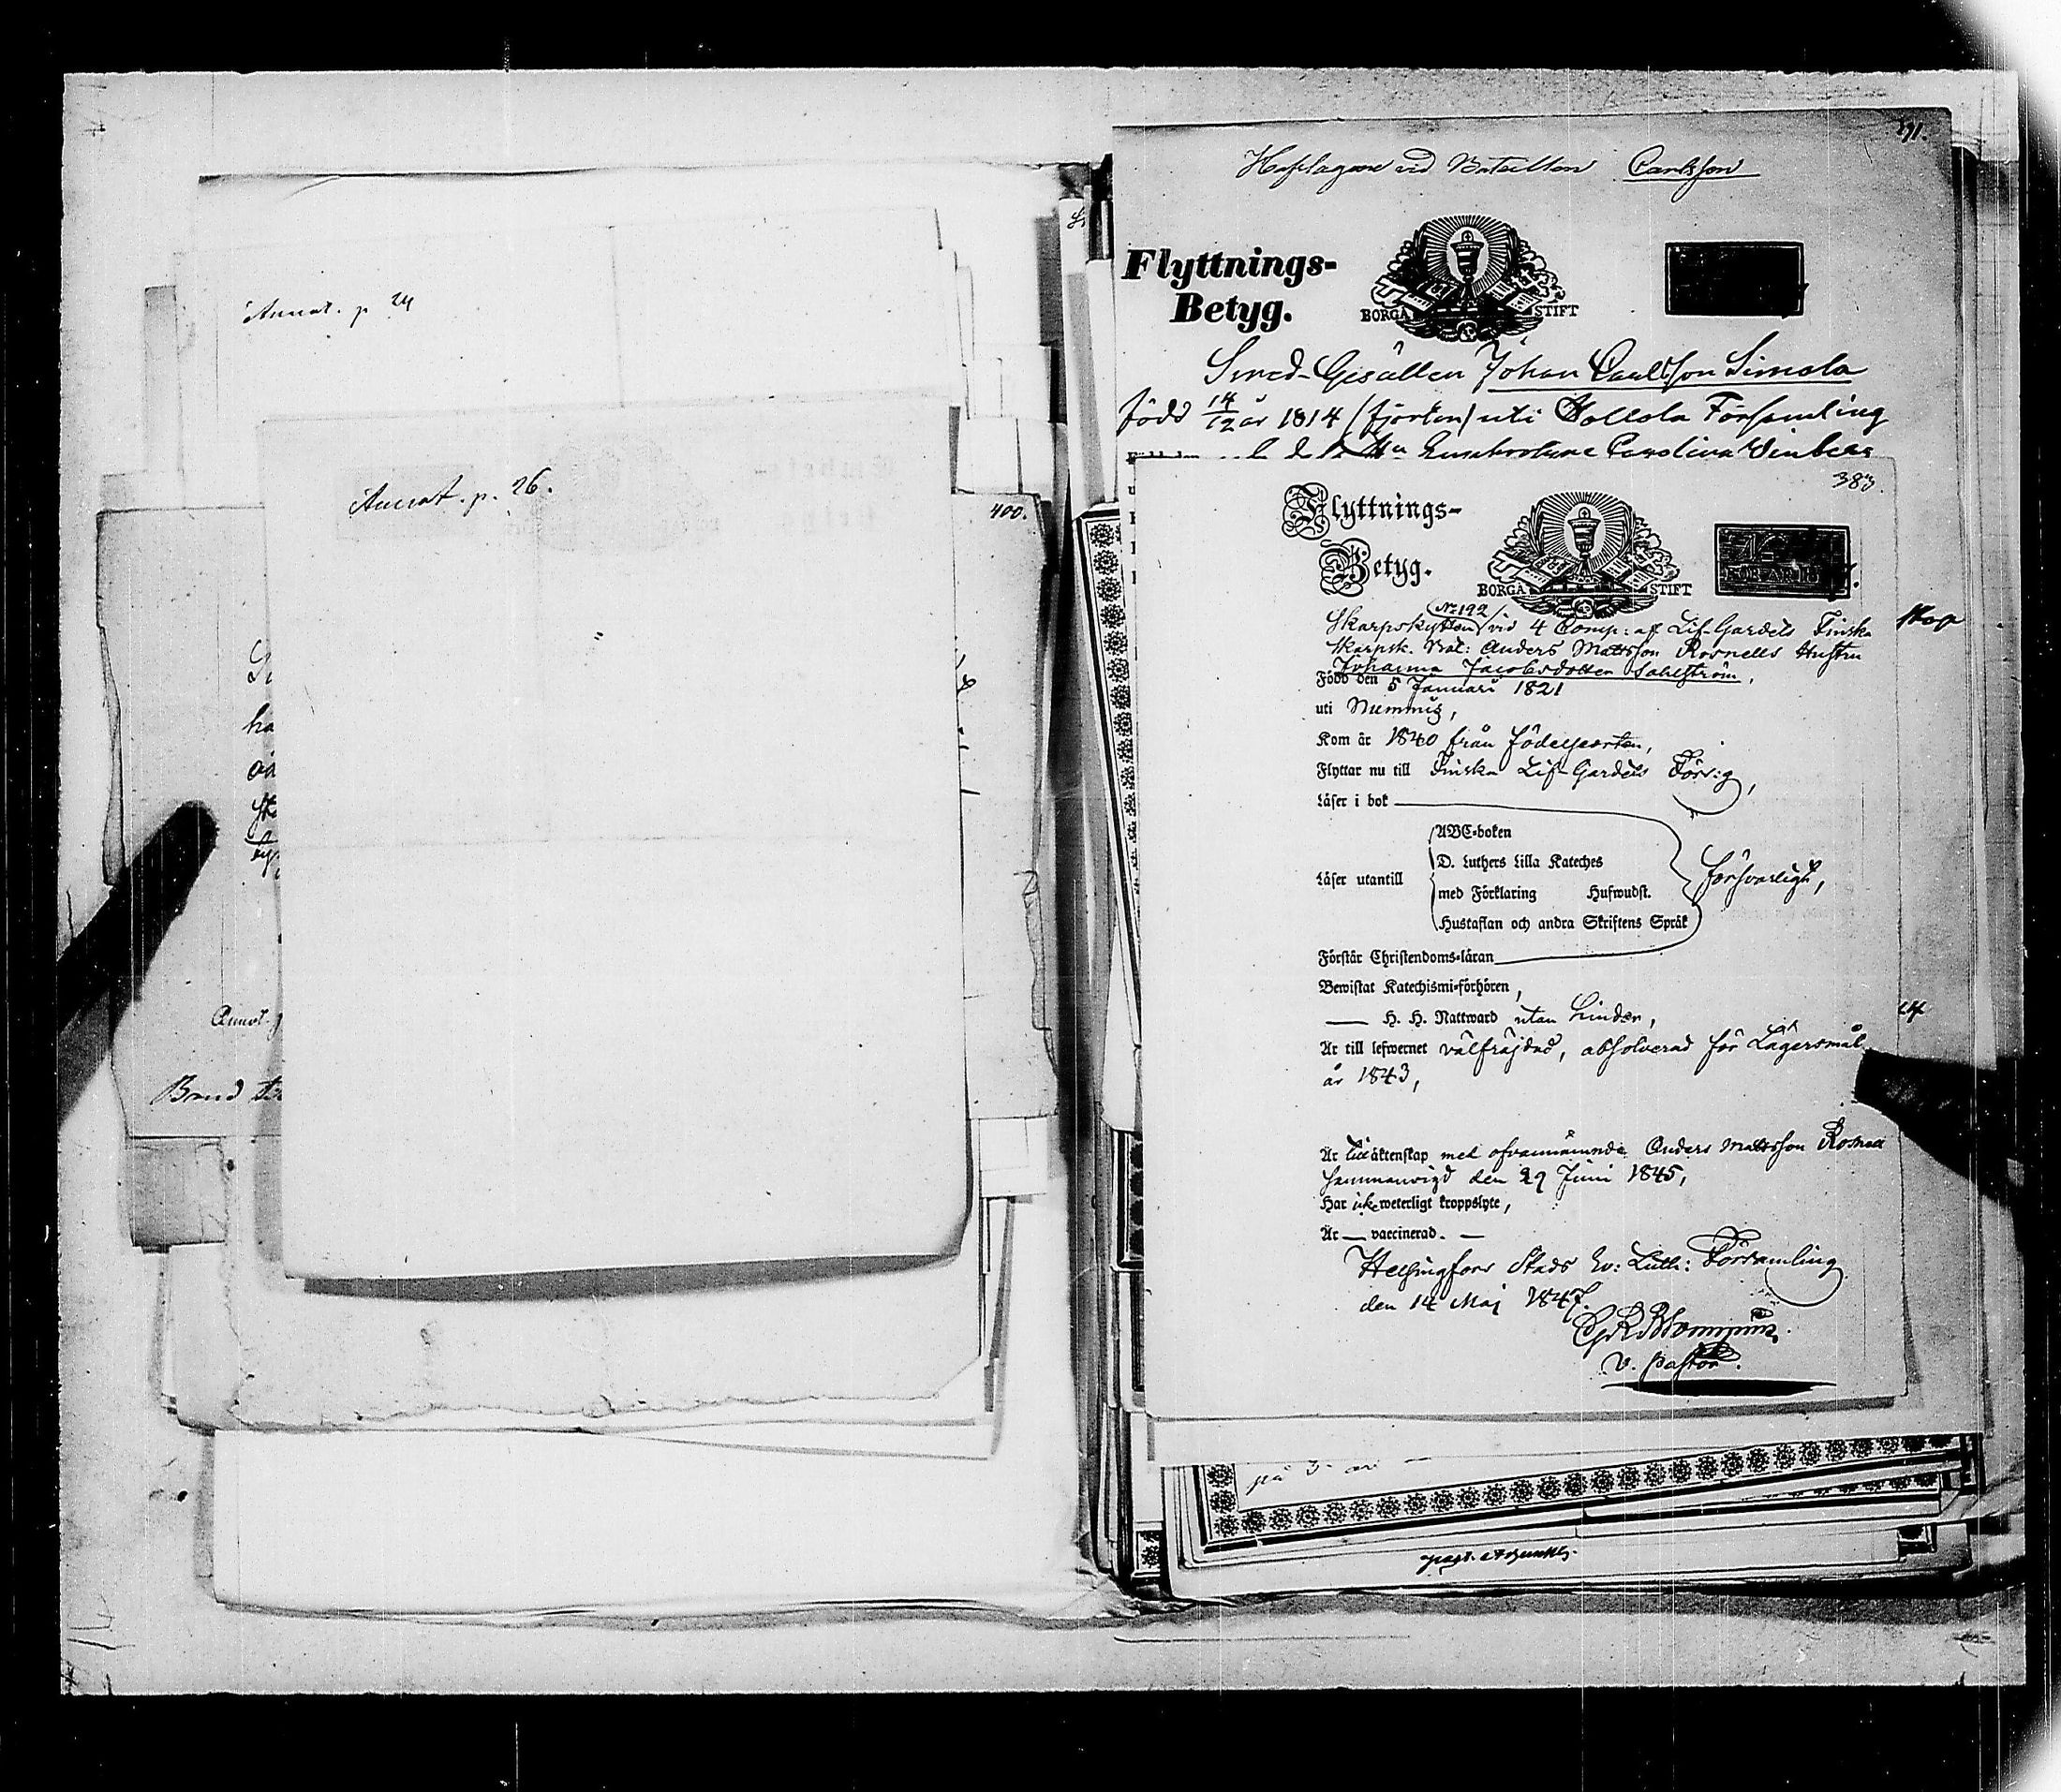 Annot. p 24
Annot. p. 26.
400.
ha
Annot.
Brud
391.
Hofslagare vid Bataillon Carlsson
Flyttnings-
Betyg.
BORGÅ STIFT
Smed-Gesällen Johan Carlsson Simola
född 14/12 år 1814 (fjorton) uti Hollola Församling
Carolina
383.
Flyttnings-
Betyg.
BORGÅ STIFT
No 192
Skarpskytten vid 4 Comp: af Lif-Gardets Finska
Skarpsk. Bat: Anders Mattsson Rosnells Hustru
Johanna Jacobsdotter Sahlström,
Född den 5 Januari 1821
uti Nummis,
Kom år 1840 från födelseorten,
Flyttar nu till Finska Lif-Gardets Förs:g,
Läser i bok
ABC-boken
D. Luthers Lilla Kateches
Läser utantill
med Förklaring Hufwudst.
försvarligt,
Hustaflan och andra Skriftens Språk
Förstår Christendoms-läran
Bewistat Katechismi-förhören,
— H. H. Nattward utan hinder,
Är till lefwernet välfräjdad, absolverad för Lägersmål
år 1843,
Är i äktenskap med ofvannämnde Anders Mattsson Rosnell
sammanvigd den 29 Juni 1845,
Har icke weterligt kroppslyte,
Är — vaccinerad. —
Helsingfors Stads Ev: Luth: Församling
den 14 Maj 1847.
v. pastor.
på 3